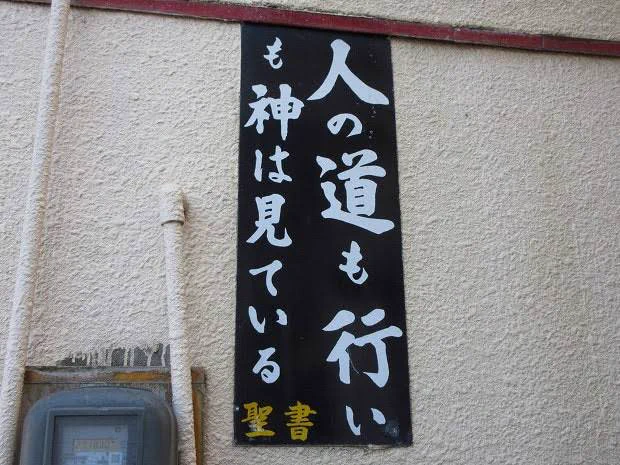 人の道も行い
も神は見ている
聖書